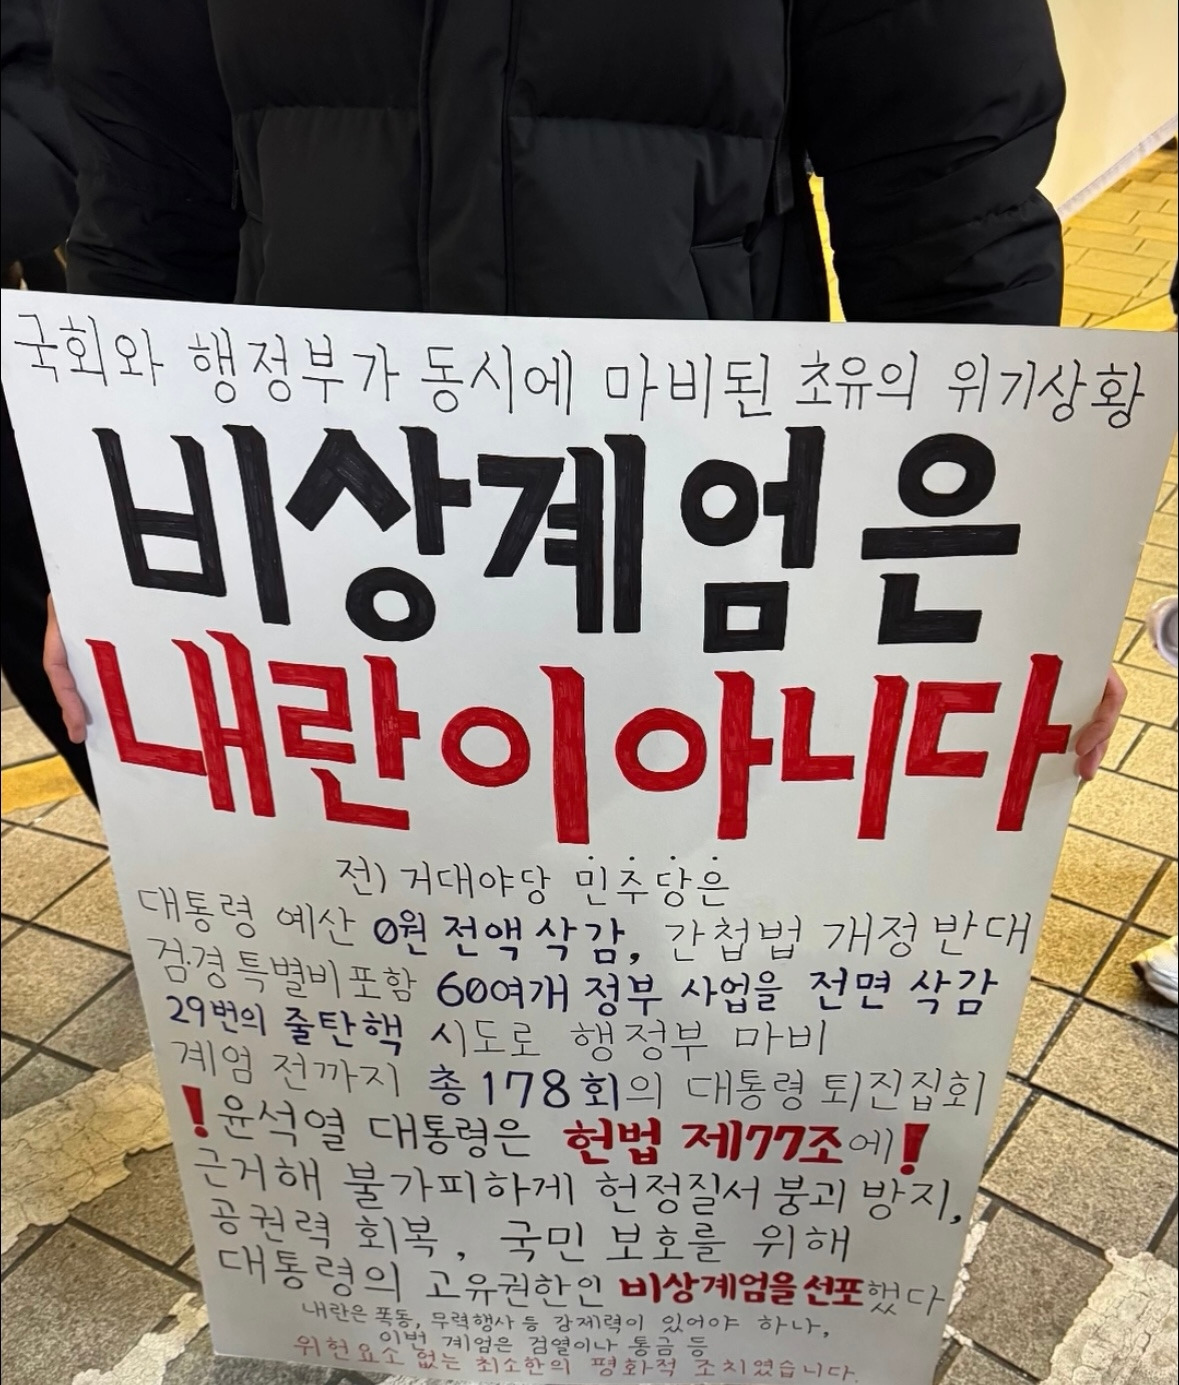 국회와 행정부가 동시에 마비된 초유의 위기상황
비상계엄은
내란이아니다
전) 거대야당 민주당은
대통령 예산 0원 전액 삭감, 간첩법 개정 반대
검·경 특별비 포함 60여개 정부 사업을 전면 삭감
29번의 줄탄핵 시도로 행정부 마비
계엄 전까지 총 178회의 대통령 퇴진집회
! 윤석열 대통령은 헌법 제77조에 !
근거해 불가피하게 헌정질서 붕괴 방지,
공권력 회복, 국민 보호를 위해
대통령의 고유권한인 비상계엄을 선포했다
내란은 폭동, 무력행사 등 강제력이 있어야 하나,
이번 계엄은 검열이나 통금 등
위헌요소 없는 최소한의 평화적 조치였습니다.